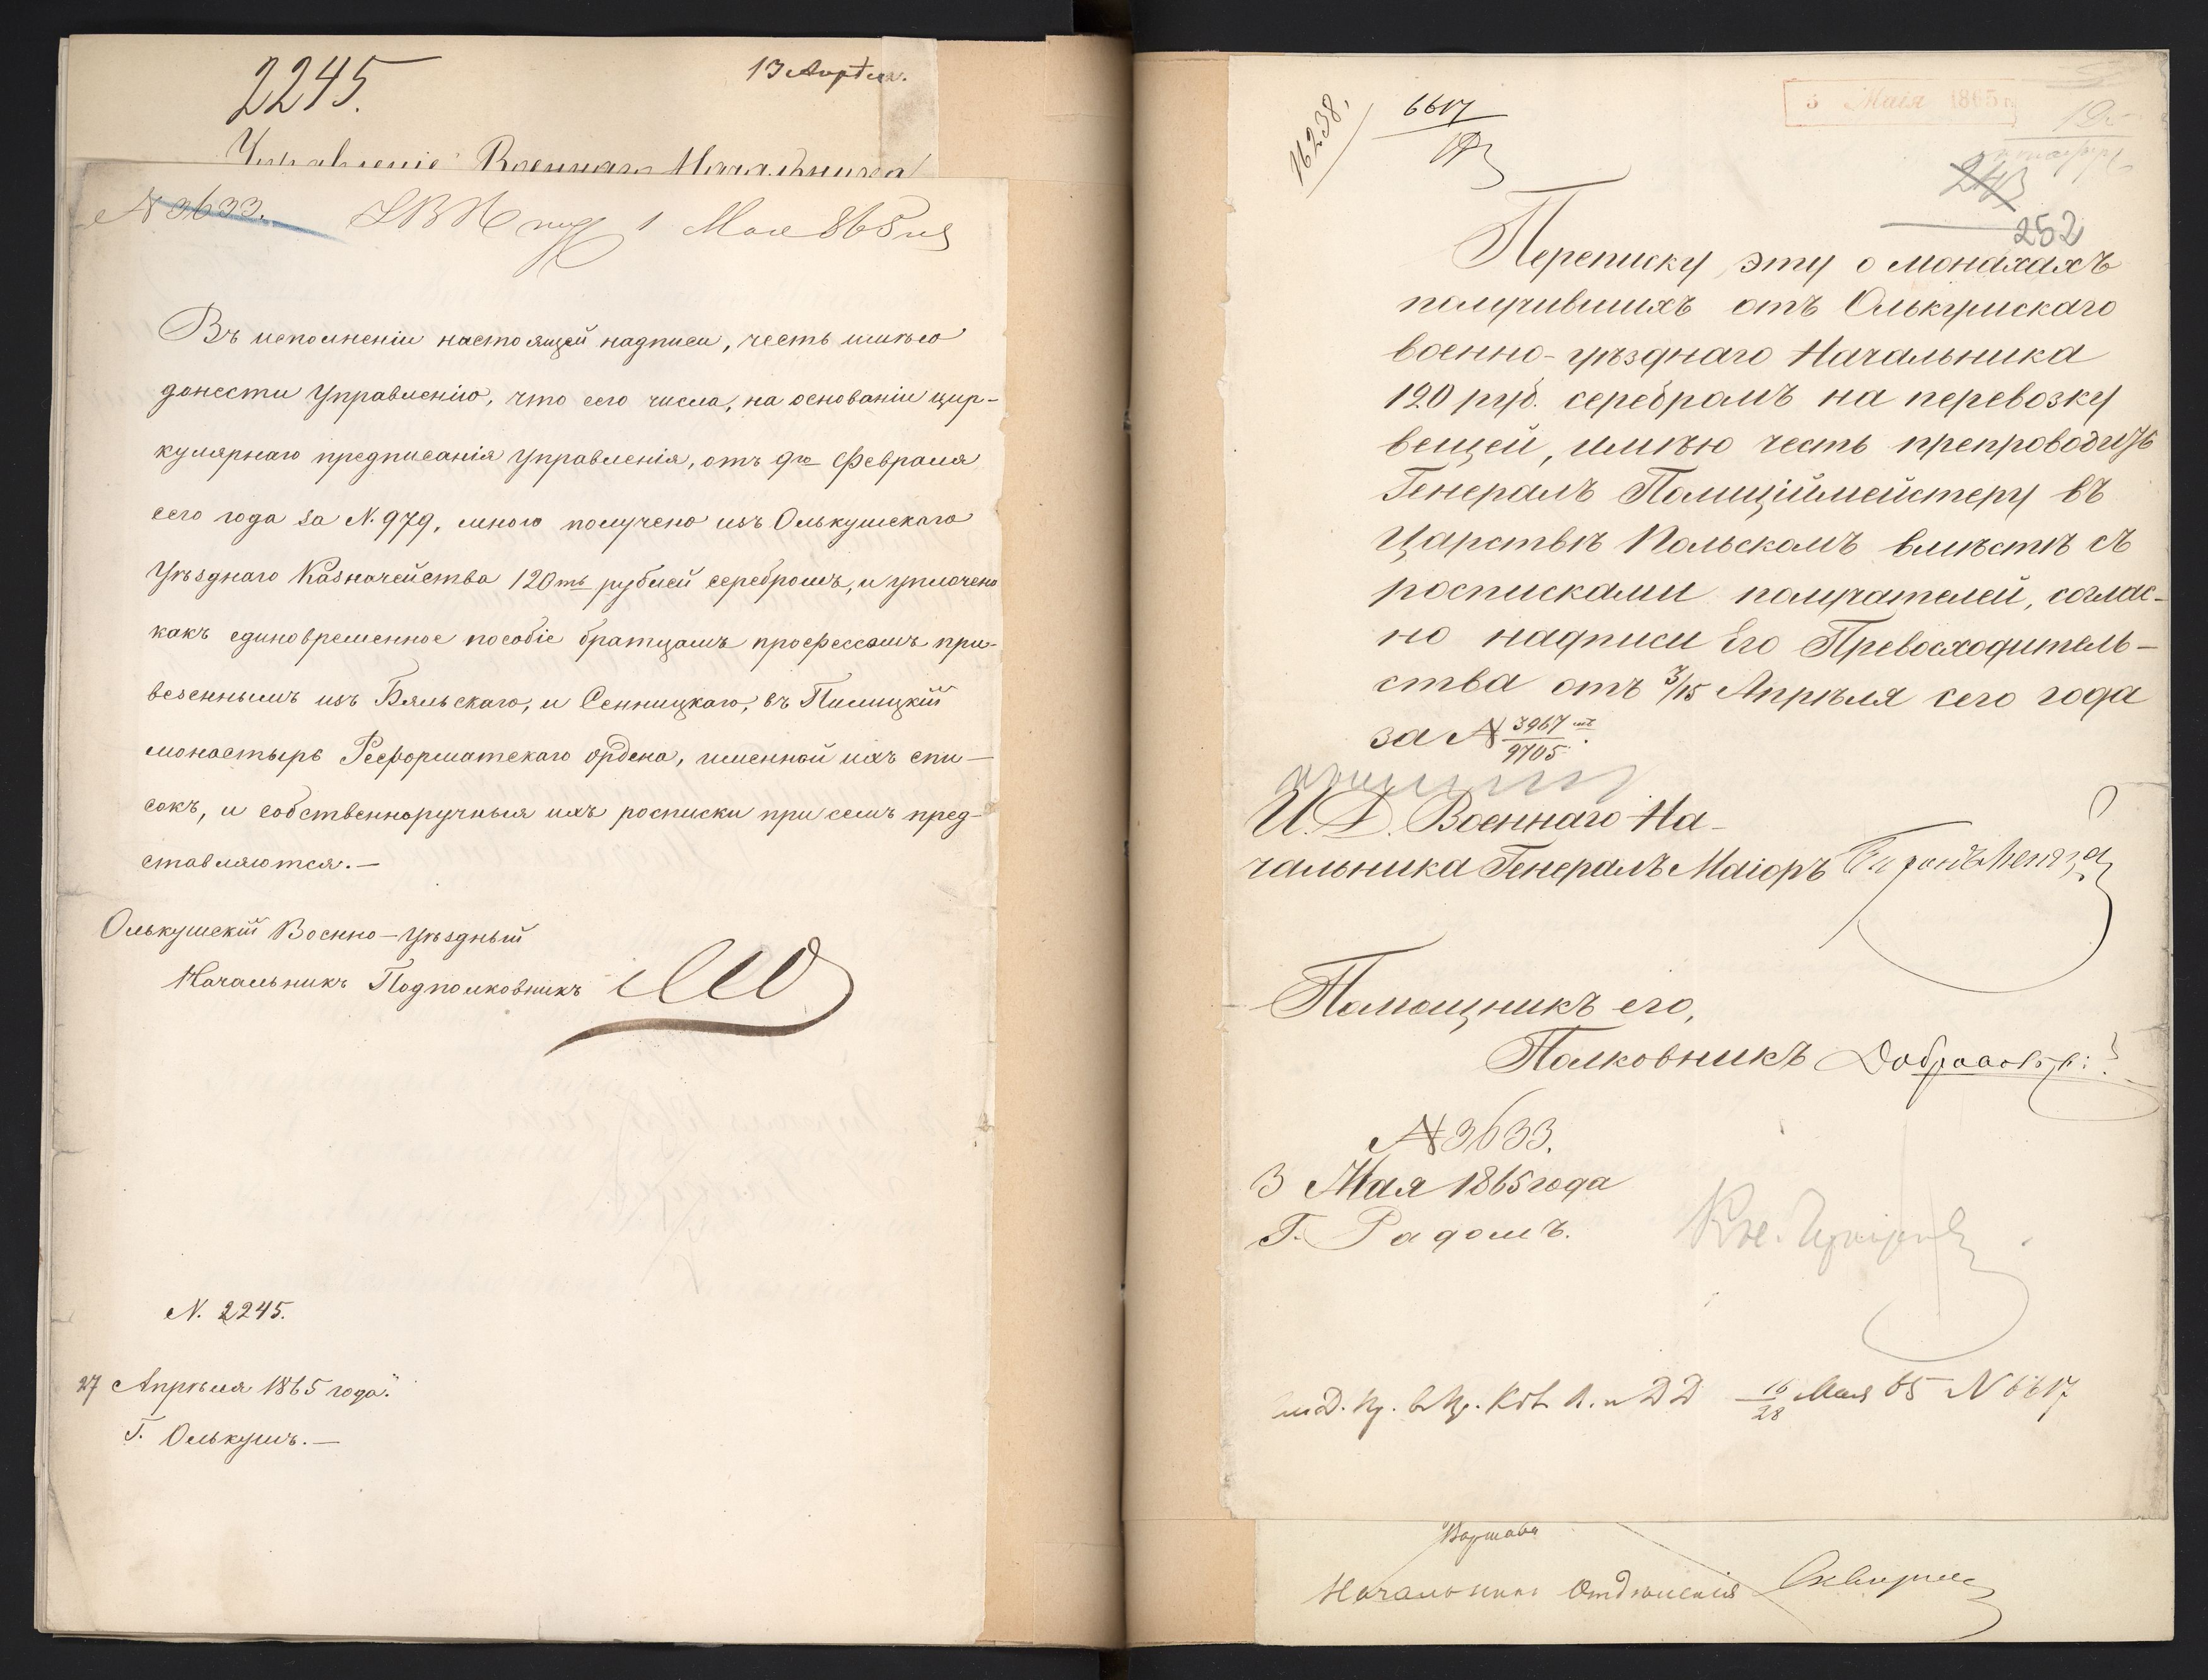 2245.
13 Апрѣля.
Управленіе Военнаго Начальника
№ 3633. 1 Мая 865
Въ исполненіи настоящей надписи, честь имѣю
донести Управленію, что сего числа, на основаніи цир-
кулярнаго предписанія Управленія, отъ 9го Февраля
сего года за N. 979, мною получено изъ Олькушскаго
Уѣзднаго Казначейства 120ть рублей серебромъ, и уплочено
какъ единовременное пособіе братцамъ профессамъ при-
везеннымъ изъ Бяльскаго, и Сенницкаго, въ Пилицкій
монастырь Реформатскаго ордена, именной ихъ спи-
сокъ, и собственноручныя ихъ росписки при семъ пред-
ставляются.—
Олькушскій Военно-Уѣздный
Начальникъ Подполковникъ
N. 2245.
27 Апрѣля 1865 года.
Г. Олькушъ.—
5 Мая 1865 г.
16238.
6617
243
252
Переписку эту о монахахъ
получившихъ отъ Олькушскаго
военно-уѣзднаго Начальника
120 руб. серебромъ на перевозку
вещей, имѣю честь препроводить
Генералъ Полиціймейстеру въ
Царствѣ Польскомъ вмѣстѣ съ
росписками получателей, соглас-
но надписи Его Превосходитель-
ства отъ 3/15 Апрѣля сего года
за № 3967/9705.
И. Д. Военнаго На-
чальника Генералъ Маіоръ
Помощникъ его,
Полковникъ
№ 3633.
3 Мая 1865 года
Г. Радомъ.
16/28 Мая 65 N 6617
Варшава
Начальникъ Отдѣленія